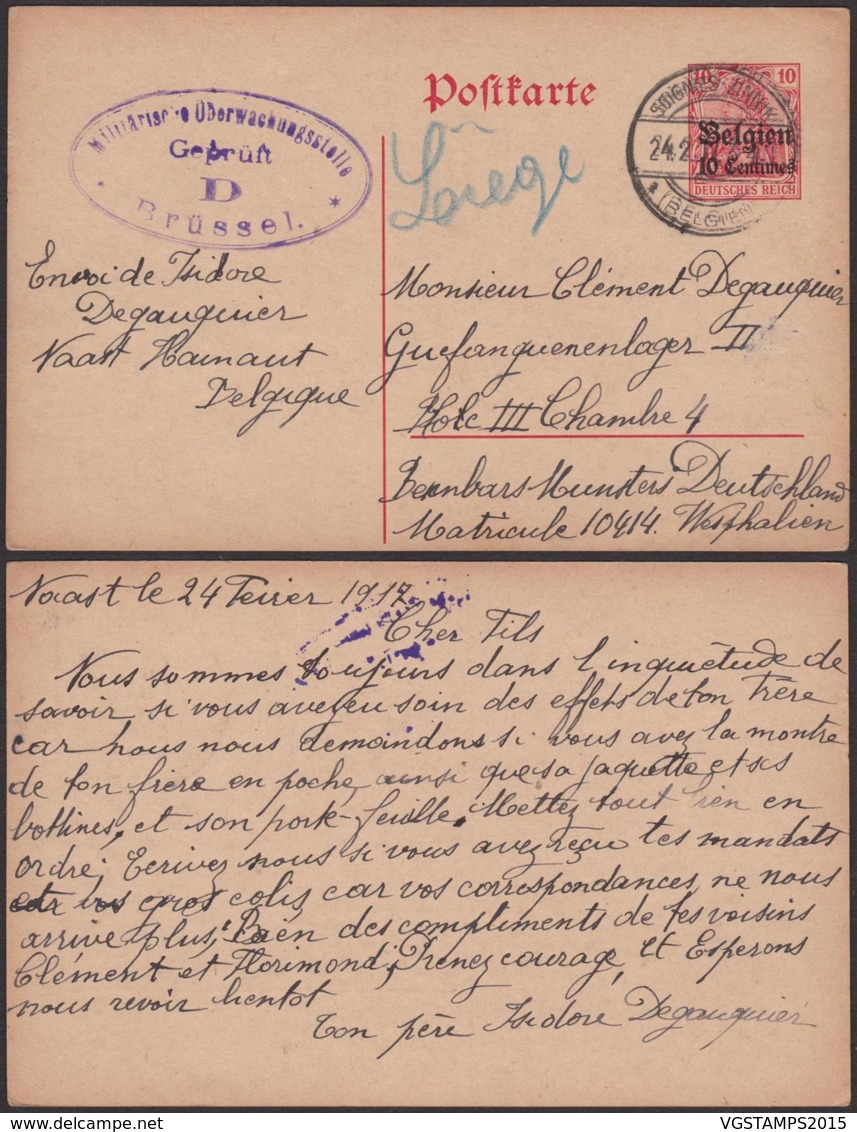 Postkarte
10 10
Belgien
10 Centimes
DEUTSCHES REICH
SOIGNIES-ZINNIK
24.2.
(BELGIEN)
Militärische Überwachungsstelle
Geprüft
D
Brüssel.
Liège
Envoi de Isidore
Degauquier
Naast Hainaut
Belgique
Monsieur Clément Degauquier
Guefanguenenlager II
III Chambre 4
Munsters Deutschland
Matricule 10414. Westphalien
Naast le 24 Fevier 1917
Cher Fils
Nous sommes toujours dans l'inquiétude de
savoir si vous avez eu soin des effets de ton frère
car nous nous demandons si vous avez la montre
de ton frère en poche, ainsi que sa jaquette et ses
bottines, et son porte-feuille. Mettez tout bien en
ordre; Ecrivez nous si vous avez reçu tes mandats
gros colis car vos correspondances, ne nous
arrive plus, Bien des compliments de tes voisins
Clément et Florimond, Prenez courage, et Esperons
nous revoir bientot
Ton père Isidore Degauquier
VGSTAMPS2015